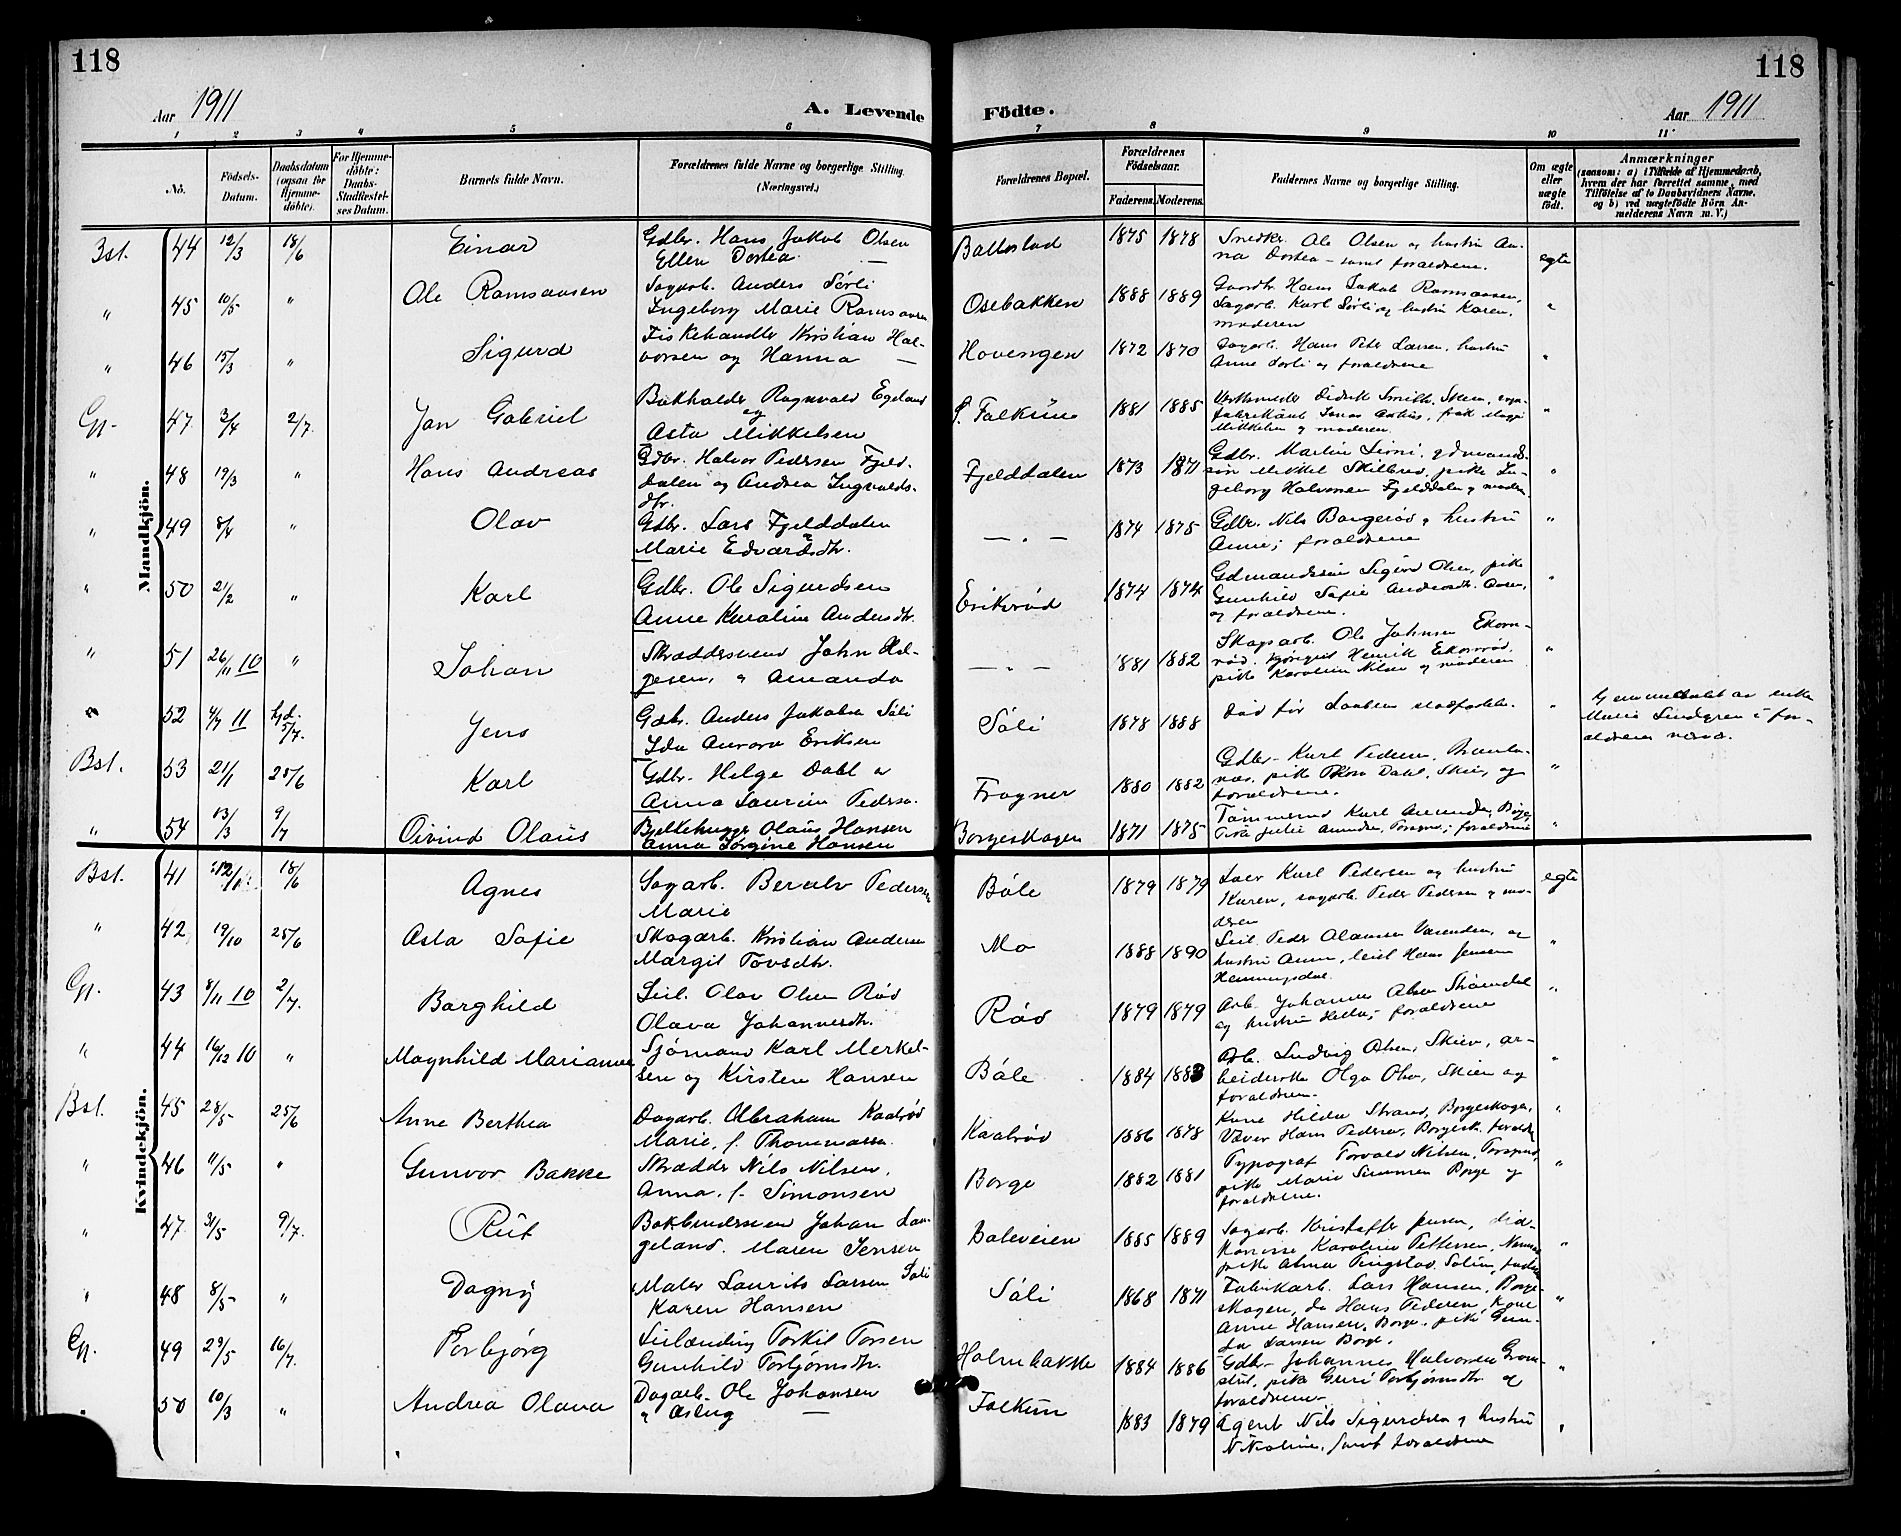 118
118
Aar 1911
A. Levende
Födte.
Aar 1911
1 2 3 4 5 6 7 8 9 10 11
No.
Födsels-
Datum.
Daabsdatum
(ogsaa for
Hjemme-
döbte).
For Hjemme-
döbte:
Daabs-
Stadfæstel-
ses Datum.
Barnets fulde Navn.
Forældrenes fulde Navne og borgerlige Stilling.
(Næringsvei.)
Forældrenes Bopæl.
Forældrenes
Födselsaar.
Faderens. Moderens.
Faddernes Navne og borgerlige Stilling.
Om ægte
eller
uægte
født.
Anmærkninger
(saasom: a) i Tilfælde af Hjemmedaab,
hvem der har forrettet samme, med
Tilföielse af to Daabsvidners Navne,
og b) ved uægtefödte Börn An-
melderens Navn m. V.)
Mandkjön.
Bst. 44 12/3 18/6 Einar
Gdbr. Hans Jakob Olsen
Ellen Dortea —
Ballestad 1875 1878
Snedkr. Ole Olsen og hustru An-
na Dortea – samt foraldrene. egte
" 45 10/5 " Ole Ramsaasen
Sagarb. Anders Sørli
Ingeborg Marie Ramsaasen
Osebakken 1888 1889
Gaardb. Hans Jakob Ramsaasen,
Sagarb. Karl Sørli og hustru Karen,
moderen "
" 46 15/3 " Sigurd
Fiskehandler Kristian Hal-
vorsen og Hanna —
Hovengen 1872 1870
Sagarb. Hans Peter Larsen, hustru
Anne Sørli og foraldrene "
Gp. 47 3/4 2/7 Jan Gabriel
Bokholder Ragnvald Egeland
og
Asta Mikkelsen
S. Falkum 1881 1885
Mikkelsen og moderen. "
" 48 19/3 " Hans Andreas
Gdbr. Halvor Pedersen Fjeld-
dalen og Andrea Ingvalds-
dtr.
Fjelddalen 1873 1871
Gdbr. Martin Limi, gdmands-
søn Mikkel Skilbred, pike In-
geborg Halvorsen Fjelddalen og moderen "
" 49 8/4 " Olav
Gdbr. Lars Fjelddalen
Marie Edvardsdtr.
— " — 1874 1875
Gdbr. Nils Bangerød og hustru
Anne; foraldrene "
" 50 21/2 " Karl
Gdbr. Ole Sigurdsen
Anne Karoline Andersdtr.
Eriksrød 1874 1874
Gdmandssøn Sigurd Olsen, pike
Gunhild Sofie Andersdtr.
og foraldrene. "
" 51 26/11 10 " Johan
Skræddersvend John Hel-
gesen, " Amanda
— " — 1881 1882
Skogsarb. Ole Johnsen Ekorn-
rød, Henrik Ekornrød,
pike Karoline Nilsen og moderen "
" 52 4/7 11 hjd. 5/7. Jens
Gdbr. Anders Jakobsen Søli
Ida Aurora Eriksen
Søli 1878 1888
Død før daaben stadfæstedes. "
Hjemmedøbt av enke
Maria Lindgren i for-
ældrenes nærv.
Bst. 53 21/1 25/6 Karl
Gdbr. Helge Dahl og
Anna Laurine Pedersen
Frogner 1880 1882
Gdbr. Karl Pedersen,
pike Thora Dahl, Skien, og
foraldrene. "
" 54 13/3 9/7 Øivind Olaus
Bjelkehugger Olaus Hansen
Anna Jørgine Hansen
Borgeskogen 1871 1875
Tømmermd Karl Amundsen, Borge,
pike Julie Amundsen, foraldrene "
Kvindekjön.
Bst. 41 18/6 Agnes
Sagarb. Berulv Pedersen
Marie
Bøle 1879 1879
Karl Pedersen og hustru
Karen, sagarb. Peder Pedersen og mo-
deren egte
" 42 19/10 25/6 Asta Sofie
Skogarb. Kristian Andersen
Margit Tovsdtr.
Mo 1888 1890
Leil. Peder Olausen Varenden, og
hustru Anne, leiel Hans Jensen
Hemmingsdal. "
Gp. 43 8/11 10 2/7. Borghild
Leil. Olav Olsen Rød
Olava Johannesdtr.
Rød 1879 1879
Arb. Johannes Olsen Strømdal
og hustru Hella, foraldrene "
" 44 16/12 10 " Magnhild Marianne
Sjømand Karl Merkel-
sen og Kirsten Hansen
Bøle 1884 1883
Arb. Ludvig Olsen, Skien, ar-
beiderske Olga Olsen, Skien og
foraldrene. "
Bst. 45 28/5 25/6 Anne Berthea
Dagarb. Abraham Kaalrød
Marie, f. Thommassen
Kaalrød 1886 1878
Kone Hilda Strand, Borgeskogen,
Væver Hans Pedersen, Borgesk. foraldre "
" 46 11/5 " Gunvor Bakke
Skrædder Nils Nilsen,
Anna, f. Simonsen
Borge 1882 1881
Typograf Torvald Nilsen, Porsgrund,
pike Marie Simonsen Borge og
foraldrene. "
" 47 31/5 9/7. Rut
Bokbindersven Johan Lan-
geland. Maren Jensen
Boleveien 1885 1889
Sagarb. Kristoffer Jensen, dia-
konisse Karoline Pettersen,
pike Alma Tingstad, "
" 48 8/5 " Dagny
Maler Laurits Larsen Søli
Karen Hansen
Søli 1868 1871
Fabrikarb. Lars Hansen, Borge-
skogen, do Hans Pedersen, Kone
Anne Hansen, Borge, pike Gun-
da Larsen Borge. "
Gp. 49 29/5 16/7. Torbjørg
Leilænding Torkil Torsen
Gunhild Torbjørnsdtr.
Holmbakke 1884 1886
Gdbr. Johannes Halvorsen Grom-
stul, pike Guri Torbjørnsdtr og
foraldrene "
" 50 10/3 " Andrea Olava
Dagarb. Ole Johansen
" Aslaug —
Falkum 1883 1879
Agent Nils Sigurdsen og hustru
Nikoline, samt foraldrene "